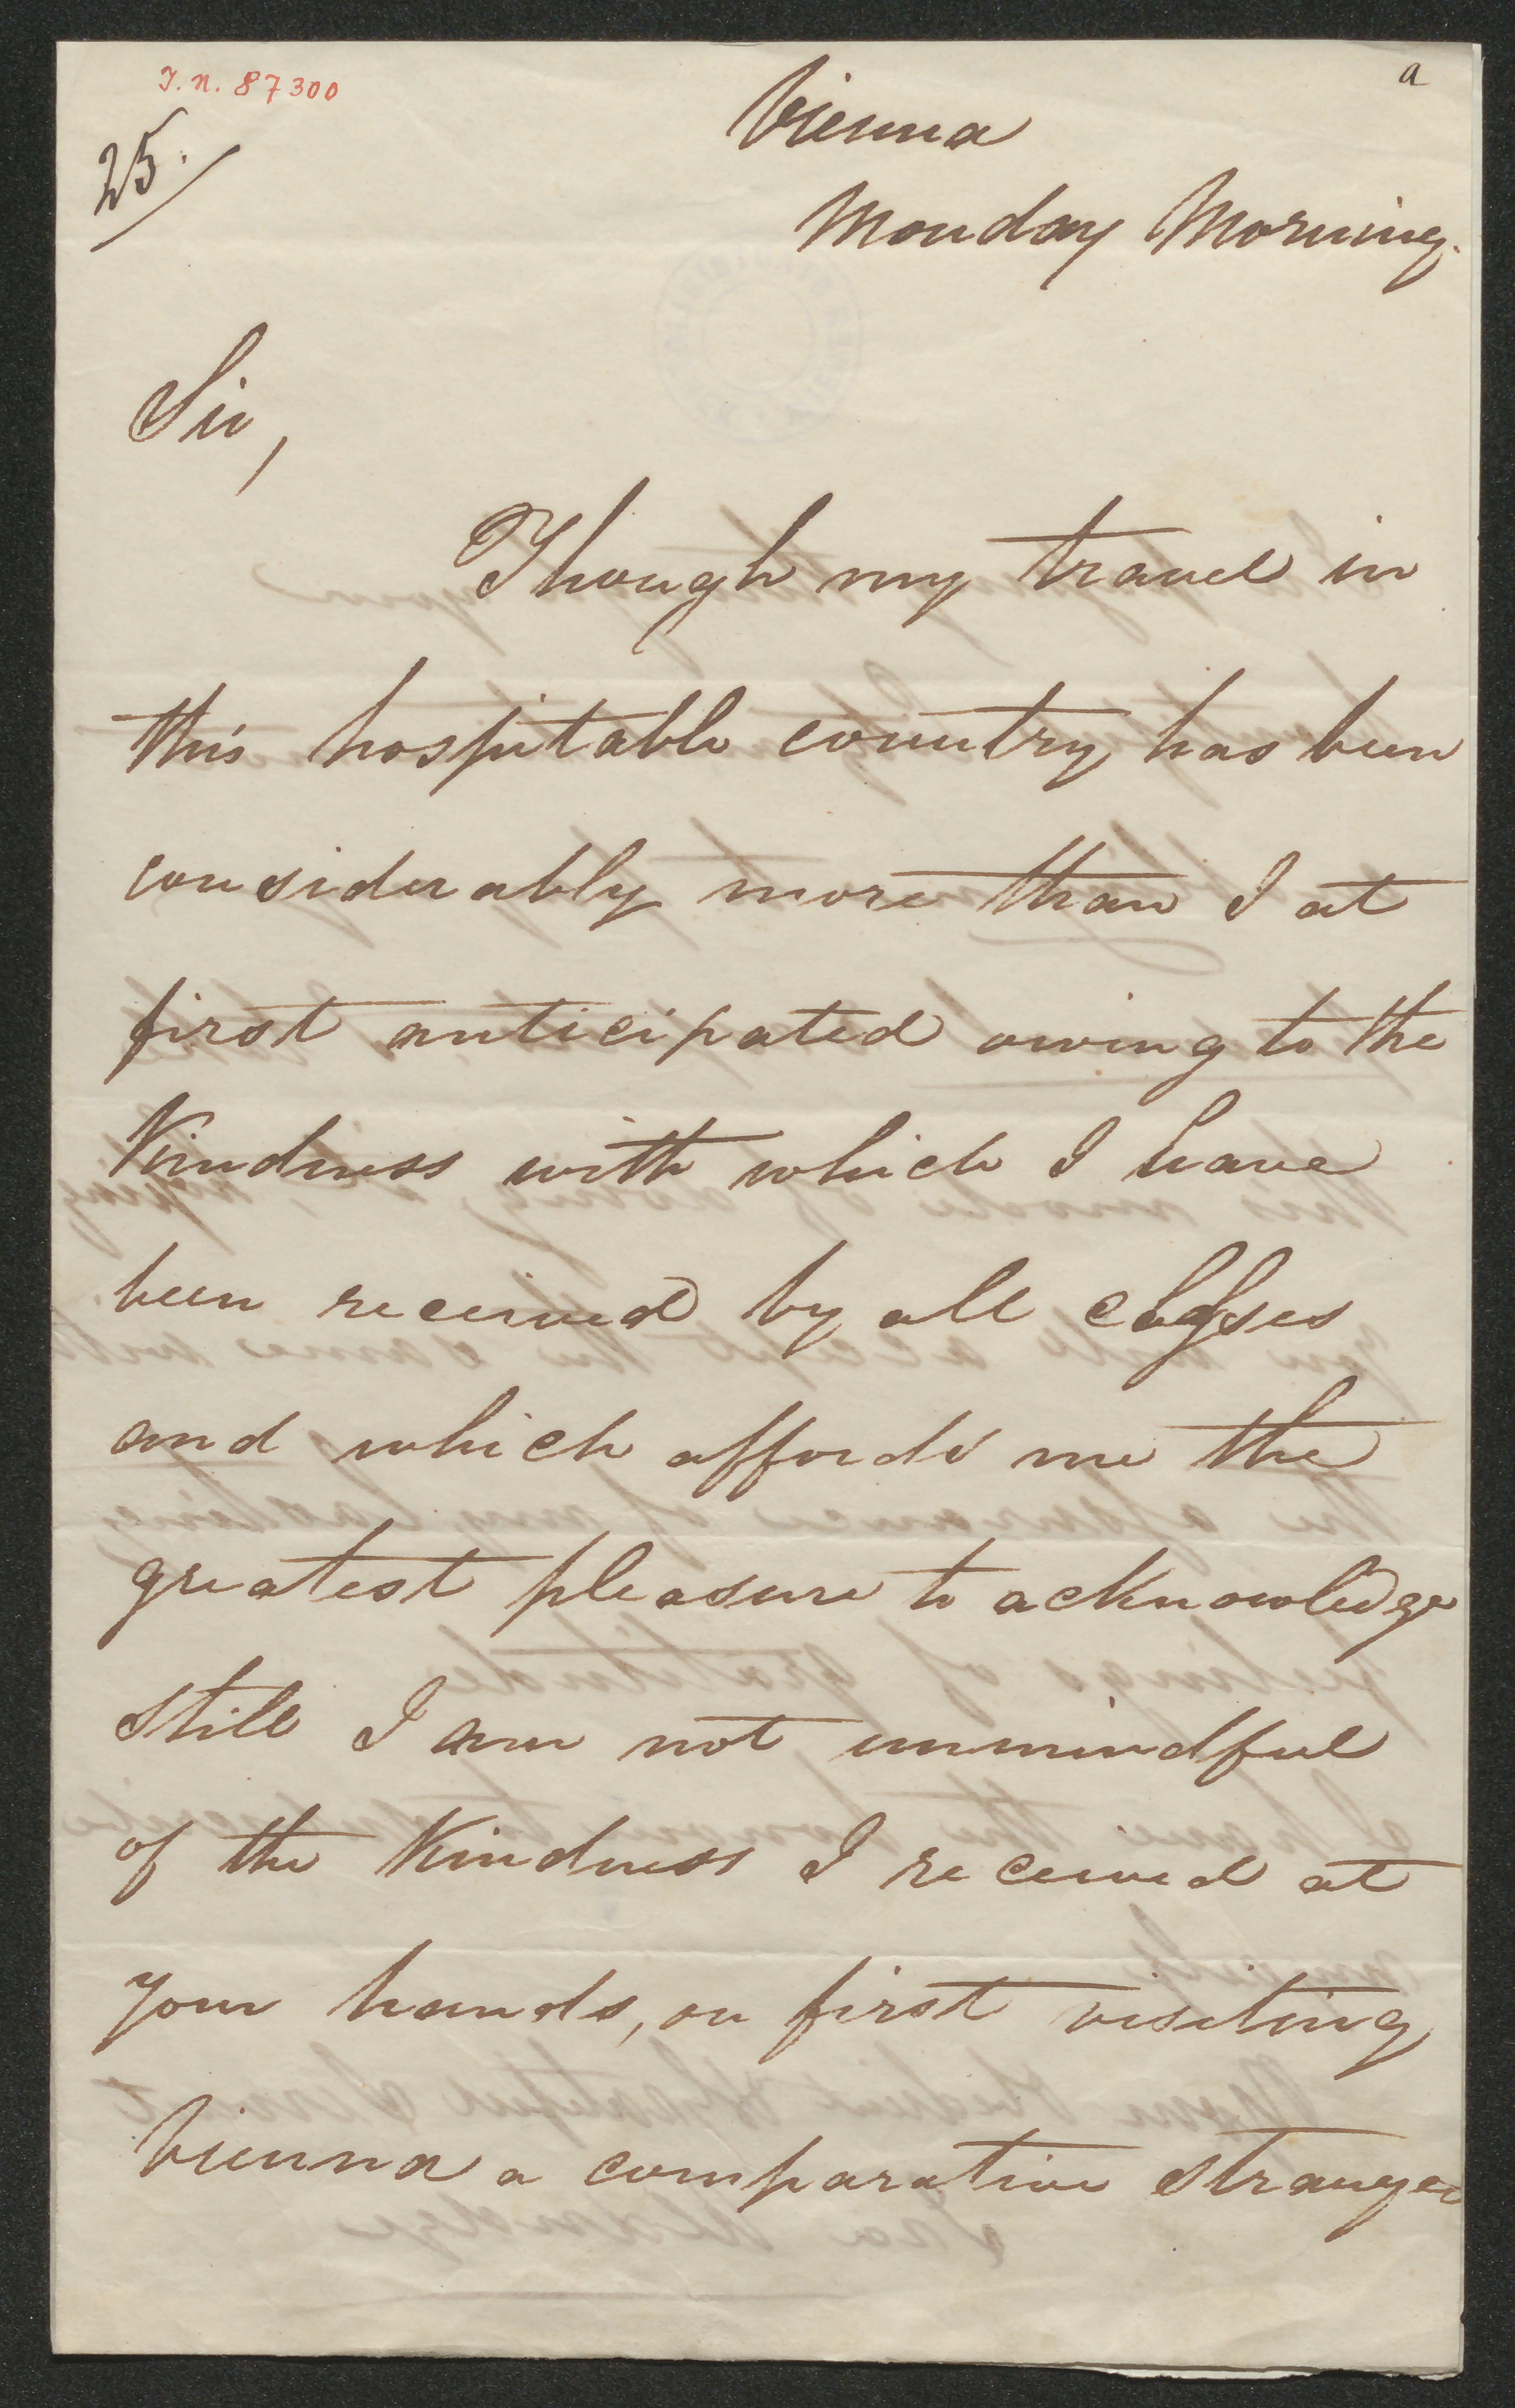 J. N. 87300
a
25.
Vienna
Monday Morning.
Sir,
Though my travel in
this hospitable country has been
considerably more than I at
first anticipated owing to the
Kindness with which I have
been received by all classes
and which affords me the
greatest pleasure to acknowledge
still I am not unmindful
of the Kindness I received at
your hands, on first visiting
Vienna a comparative stranger